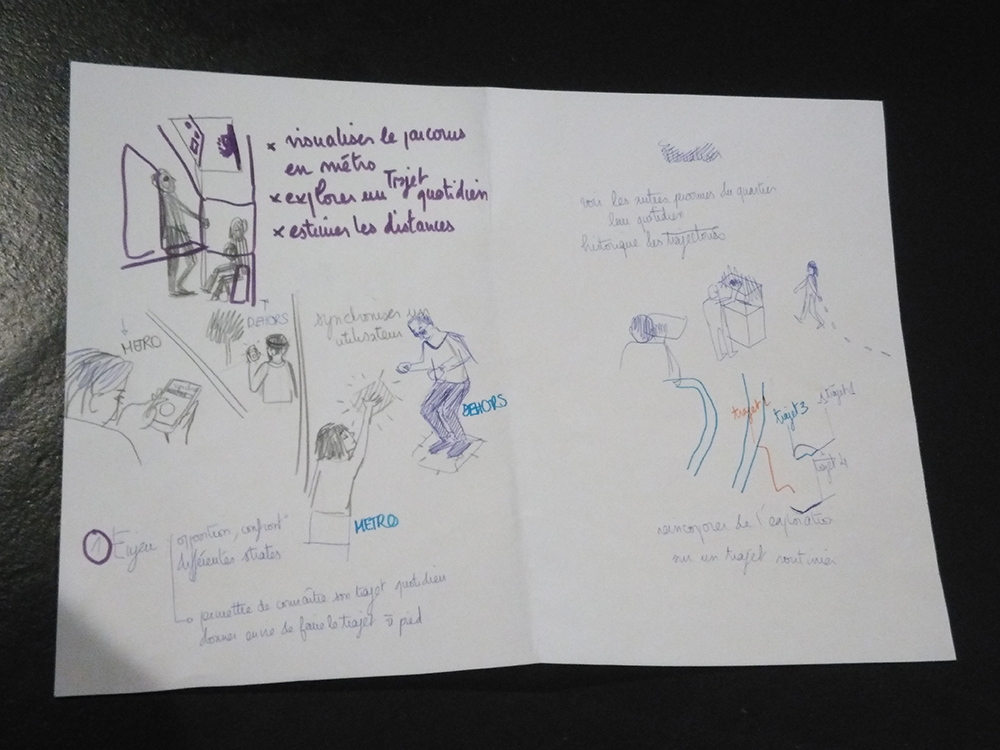 × visualiser le parcours
en métro
× explorer un Trajet quotidien
× estimer les distances
METRO
DEHORS
synchroniser un
utilisateur
DEHORS
METRO
1 Enjeu opposition, confront°
différentes strates
→ permettre de connaître son trajet quotidien
donner envie de faire le trajet à pied
voir les autres personnes du quartier
leur quotidien
historique des trajectoires
trajet 1
trajet 2
trajet 3
trajet 4
réincorporer de l'exploration
sur un trajet routinier